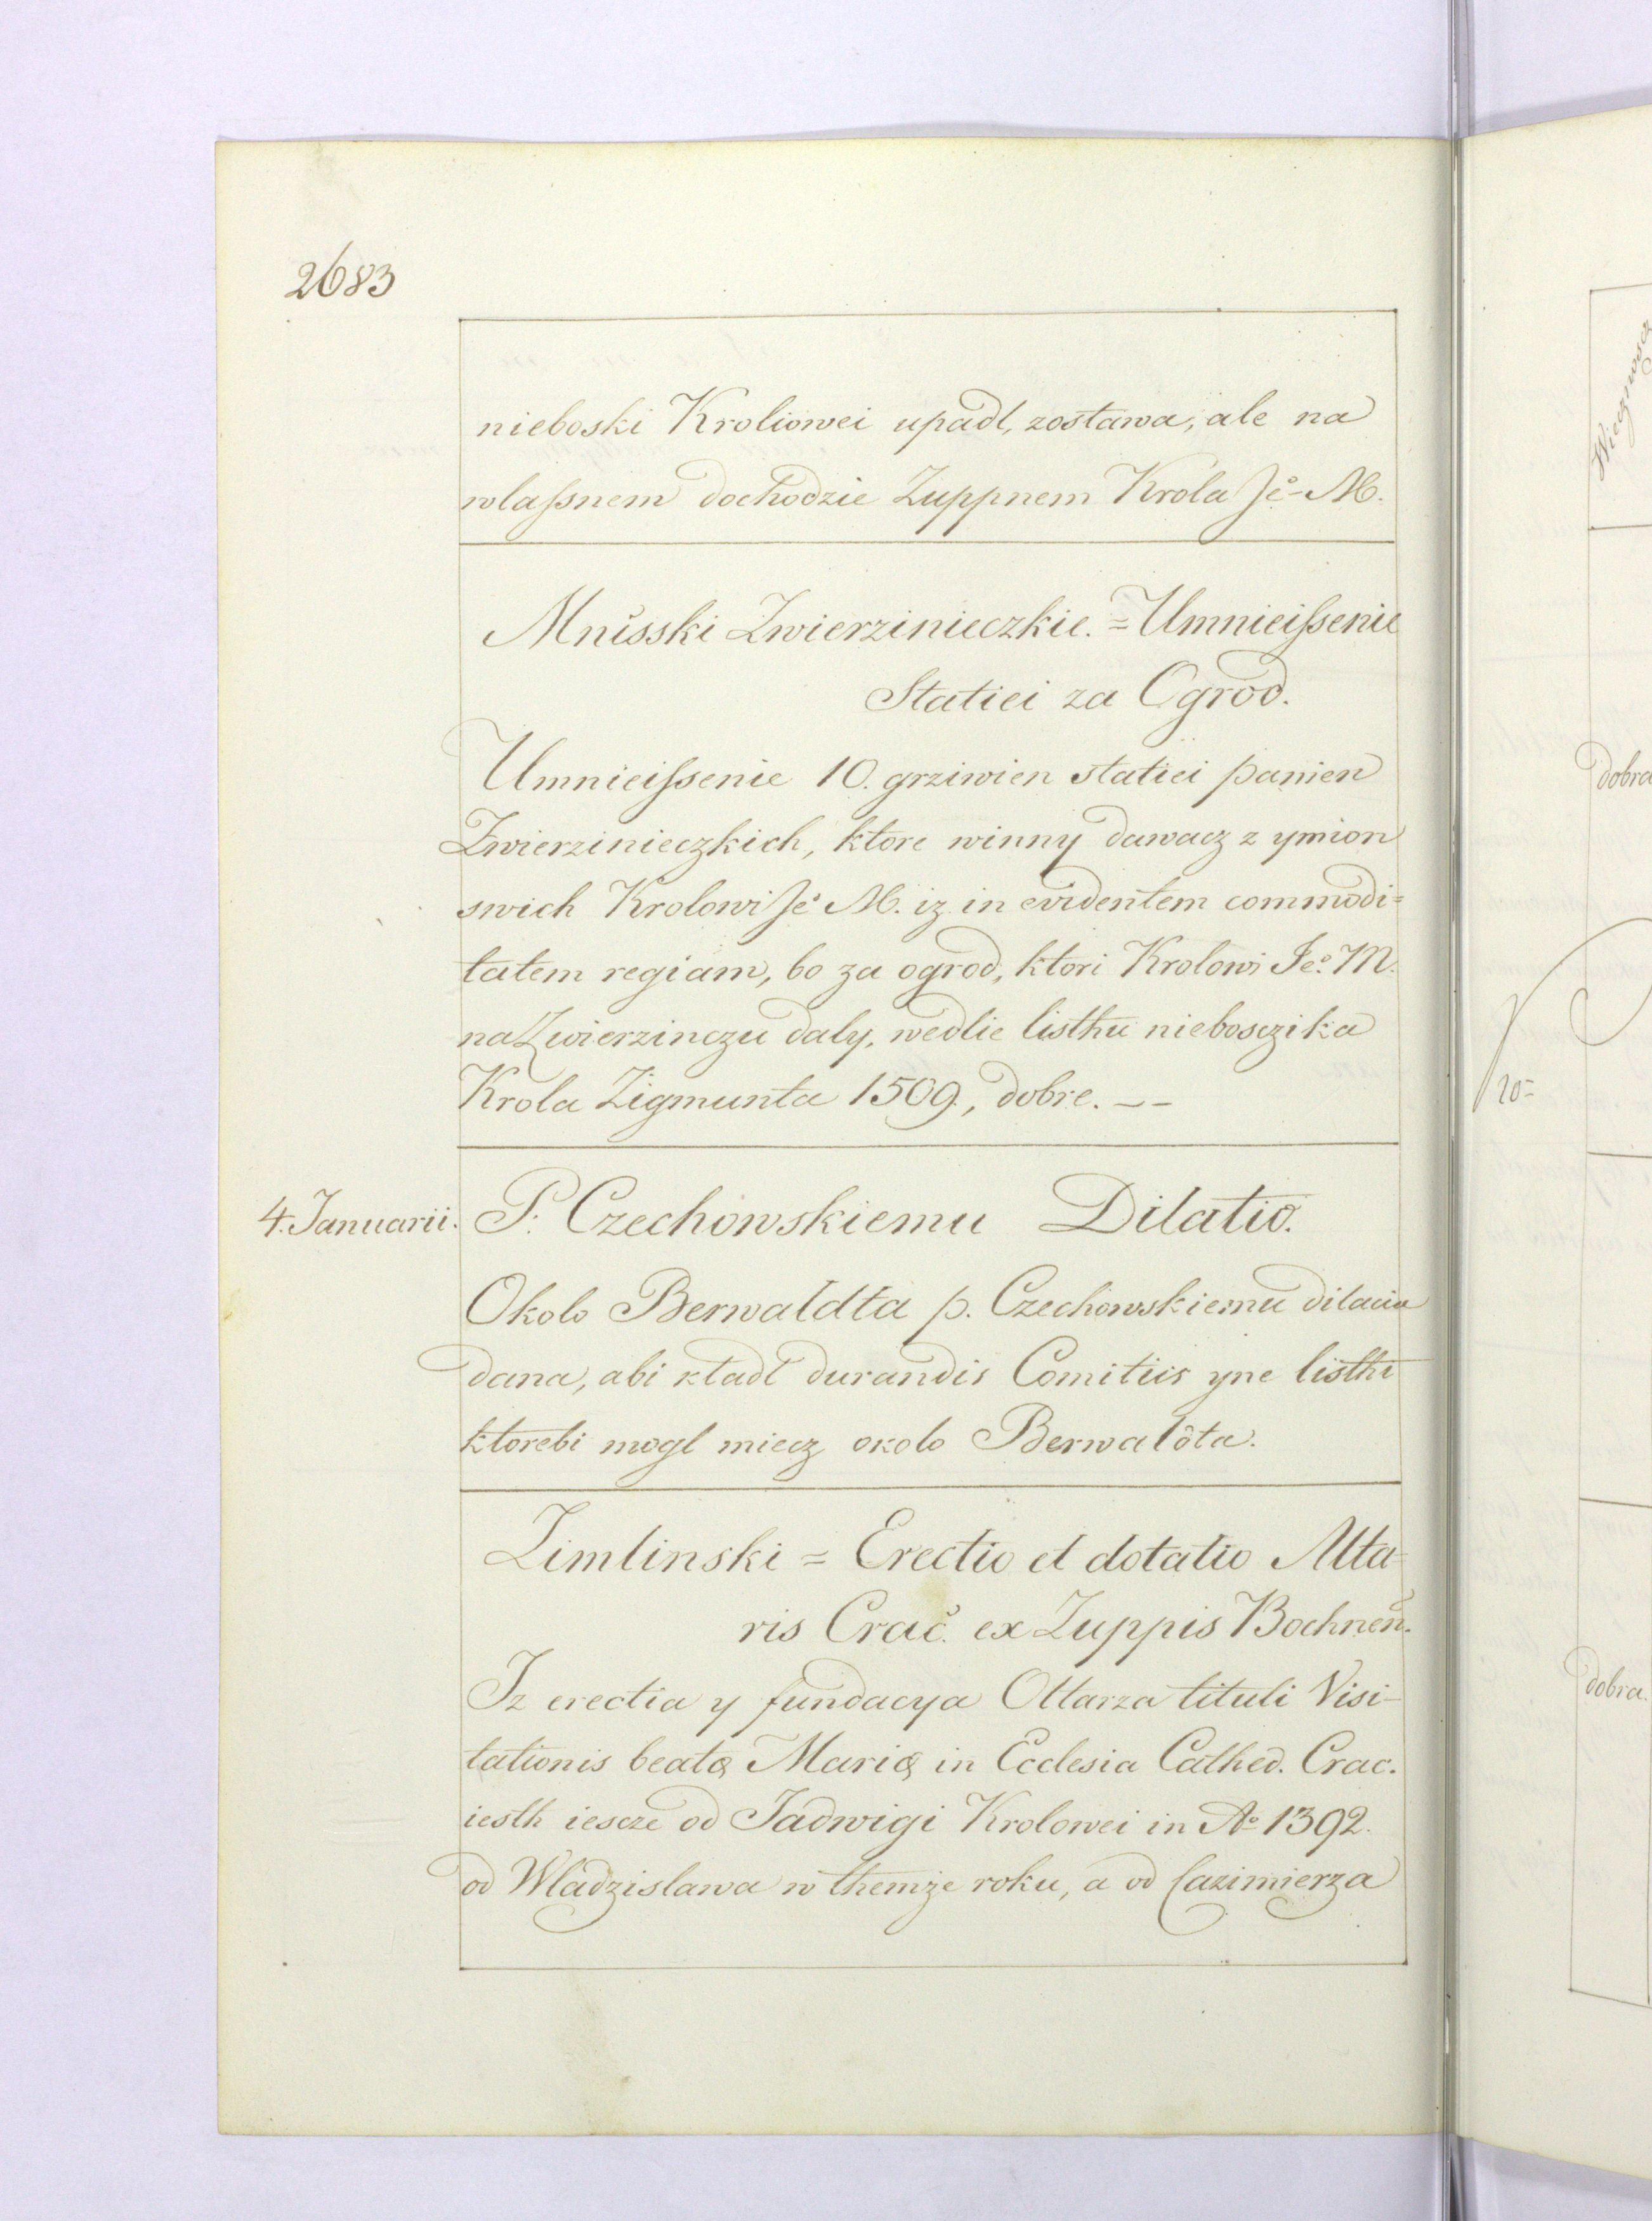 2683
nieboski Kroliowei upadl, zostawa, ale na
wlaſsnem dochodzie Zuppnem Krola Je° M.
Mnisski Zwierzinieczkie. = Umnieiſsenie
Statiei za Ogrod.
Umnieiſsenie 10. grziwien statiei panien
Zwierzinieczkich, ktore winny dawacz z ymion
swich Krolowi Je° M. iz in evidentem commodi=
tatem regiam, bo za ogrod, ktori Krolowi Je°. M.
na Zwierzinczu daly, wedlie listhu niebosczika
Krola Zigmunta 1509., dobre. — —
4. Januarii.
P: Czechowskiemu Dilatio.
Okolo Berwaldta p. Czechowskiemu dilacia
dana, abi kladl durandis Comitiis yne listhi
ktorebi mogl miecz okolo Berwaldta.
Zimlinski = Erectio et dotatio Alta-
ris Crac̃. ex Zuppis Bochneñ.
Iz erectia y fundacya Oltarza tituli Visi-
tationis beatę Marię in Ecclesia Cathed. Crac.
iesth iescze od Jadwigi Krolowei in A° 1392.
od Wladzislawa w themże roku, a od Cazimierza
dobra
20-
dobra.